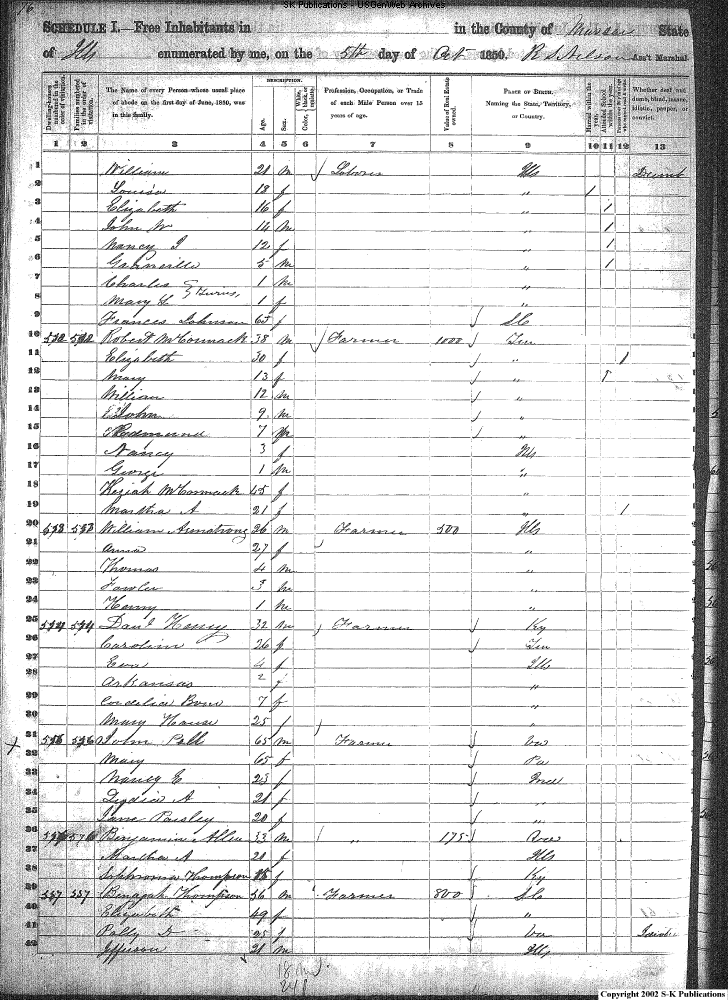 SK Publications - USGenWeb Archives
76
SCHEDULE I.—Free Inhabitants in in the County of State
of Ills enumerated by me, on the 5th day of Oct 1850. R S Nelson Ass't Marshal.
Dwelling-houses numbered in the order of visitation.
Families numbered in the order of visitation.
The Name of every Person whose usual place of abode on the first day of June, 1850, was in this family.
DESCRIPTION.
Age.
Sex.
Color, White, black, or mulatto.
Profession, Occupation, or Trade of each Male Person over 15 years of age.
Value of Real Estate owned.
PLACE OF BIRTH.
Naming the State, Territory, or Country.
Married within the year.
Attended School within the year.
Whether deaf and dumb, blind, insane, idiotic, pauper, or convict.
1 2 3 4 5 6 7 8 9 10 11 12 13
1 William 21 m Laborer Ills
2 Louisa 18 f " 1
3 Elizabeth 16 f " 1
4 John W 14 m " 1
5 Nancy J 12 f " 1
6 Granville 5 m " 1
7 Charles 1 m "
8 Mary L } Twins, 1 f "
9 Frances Johnson 63 f S C
10 532 532 Robert McCormack 38 m Farmer 1000 Ten
11 Elizabeth 30 f " 1
12 Mary 13 f " 1
13 William 12 m "
14 John 9 m "
15 Redmund 7 m "
16 Nancy 3 f Ills
17 George 1 m "
18 Keziah McCormack 45 f
19 Martha A 21 f " 1
20 533 533 William Armstrong 36 m Farmer 500 Ills
21 Anna 27 f "
22 Thomas 4 m "
23 Fowler 3 m "
24 Henry 1 m "
25 534 534 Danl 32 m Farmer Ky
26 Caroline 26 f Ten
27 Eva 4 f Ills
28 Arkansas 2 f "
29 Cordelia 7 f "
30 Mary 25 f "
31 536 John 65 m Farmer
32 Mary 65 f Pa
33 Nancy E 23 f
34 Lydia A 21 f "
35 Jane Paisley 20 f "
36 Benjamin Allen 33 m " 175
37 Martha A 21 f Ills
38 Sophrona Thompson f Ky
39 557 557 Benajah Thompson 56 m Farmer 800 S C
40 Elizabeth 49 f "
41 Polly D 25 f
42 Jefferson 21 m Ills
Copyright 2002 S-K Publications